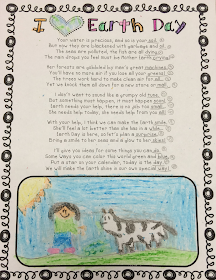 I Earth Day
Your water is precious, and so is your soil.
But now they are blackened with garbage and oil.
The seas are polluted, the fish are all dying.
The raindrops you feel must be Mother Earth crying.
Her forests are gobbled by man's great machines.
You'll have no more air if you lose all your greens!
The trees work hard to make clean air for all.
Yet we knock them all down for a new store or mall.
I don't want to sound like a grumpy old
But something must happen, it must happen soon!
Earth needs your help, there is no job too small.
She needs help today, she needs help from you all.
With your help, I think we can make the Earth
She'll feel a lot better than she has in a while.
Earth Day is here, so let's plan a
Bring a smile to her seas and a glow to her
I'll give you ideas for some things you can do.
Some ways you can color this world green and blue.
Put a star on your calendar, today is the day
We will make the Earth shine in our own special way!